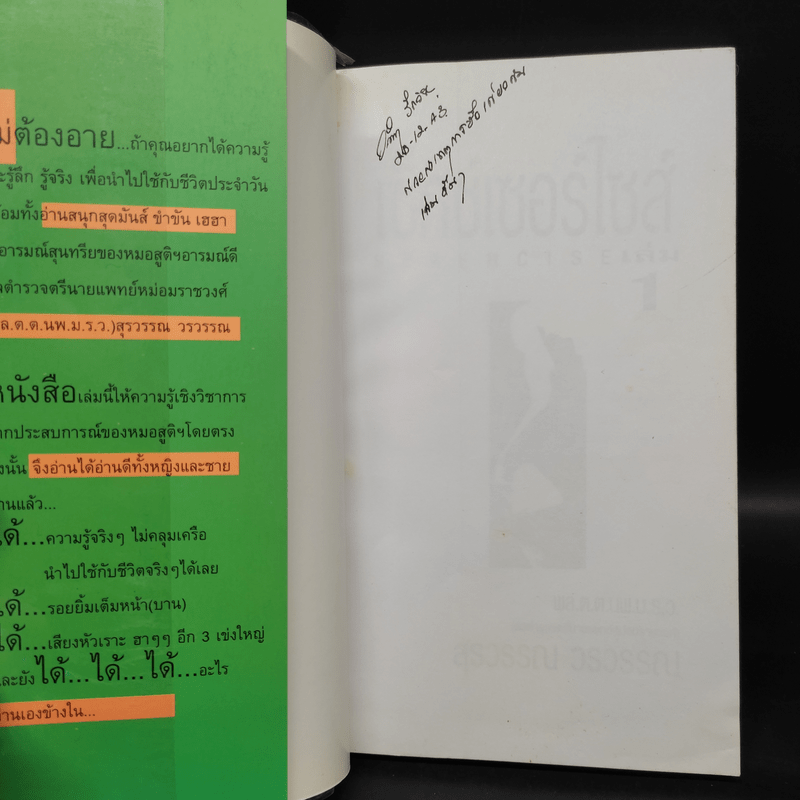 ม่ต้องอาย...ถ้าคุณอยากได้ความรู้
ะรู้ลึก รู้จริง เพื่อนำไปใช้กับชีวิตประจำวัน
้อมทั้งอ่านสนุกสุดมันส์ ขำขัน เฮฮา
อารมณ์สุนทรียของหมอสูติฯอารมณ์ดี
ลตำรวจตรีนายแพทย์หม่อมราชวงศ์
ล.ต.ต.นพ.ม.ร.ว.)สุรวรรณ วรวรรณ
หนังสือเล่มนี้ให้ความรู้เชิงวิชาการ
ากประสบการณ์ของหมอสูติฯโดยตรง
งนั้น จึงอ่านได้อ่านดีทั้งหญิงและชาย
่านแล้ว...
ได้...ความรู้จริงๆ ไม่คลุมเครือ
นำไปใช้กับชีวิตจริงๆได้เลย
ได้...รอยยิ้มเต็มหน้า(บาน)
ได้...เสียงหัวเราะ ฮาๆๆ อีก 3 เข่งใหญ่
ละยัง ได้...ได้...ได้...อะไร
่านเองข้างใน...
20-12-43